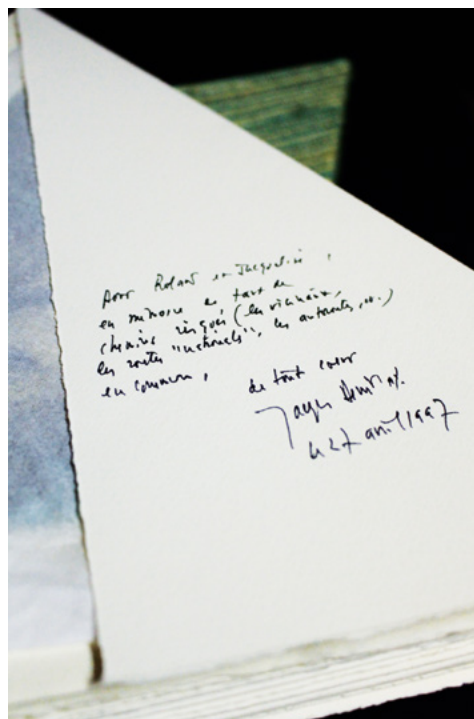 Pour Roland et Jacqueline,
en mémoire de tant de
chemins risqués (les vicinaux,
les routes "nationales", les autoroutes, ...)
en commun,
de tout cœur
Jacques
le 27 avril 1997